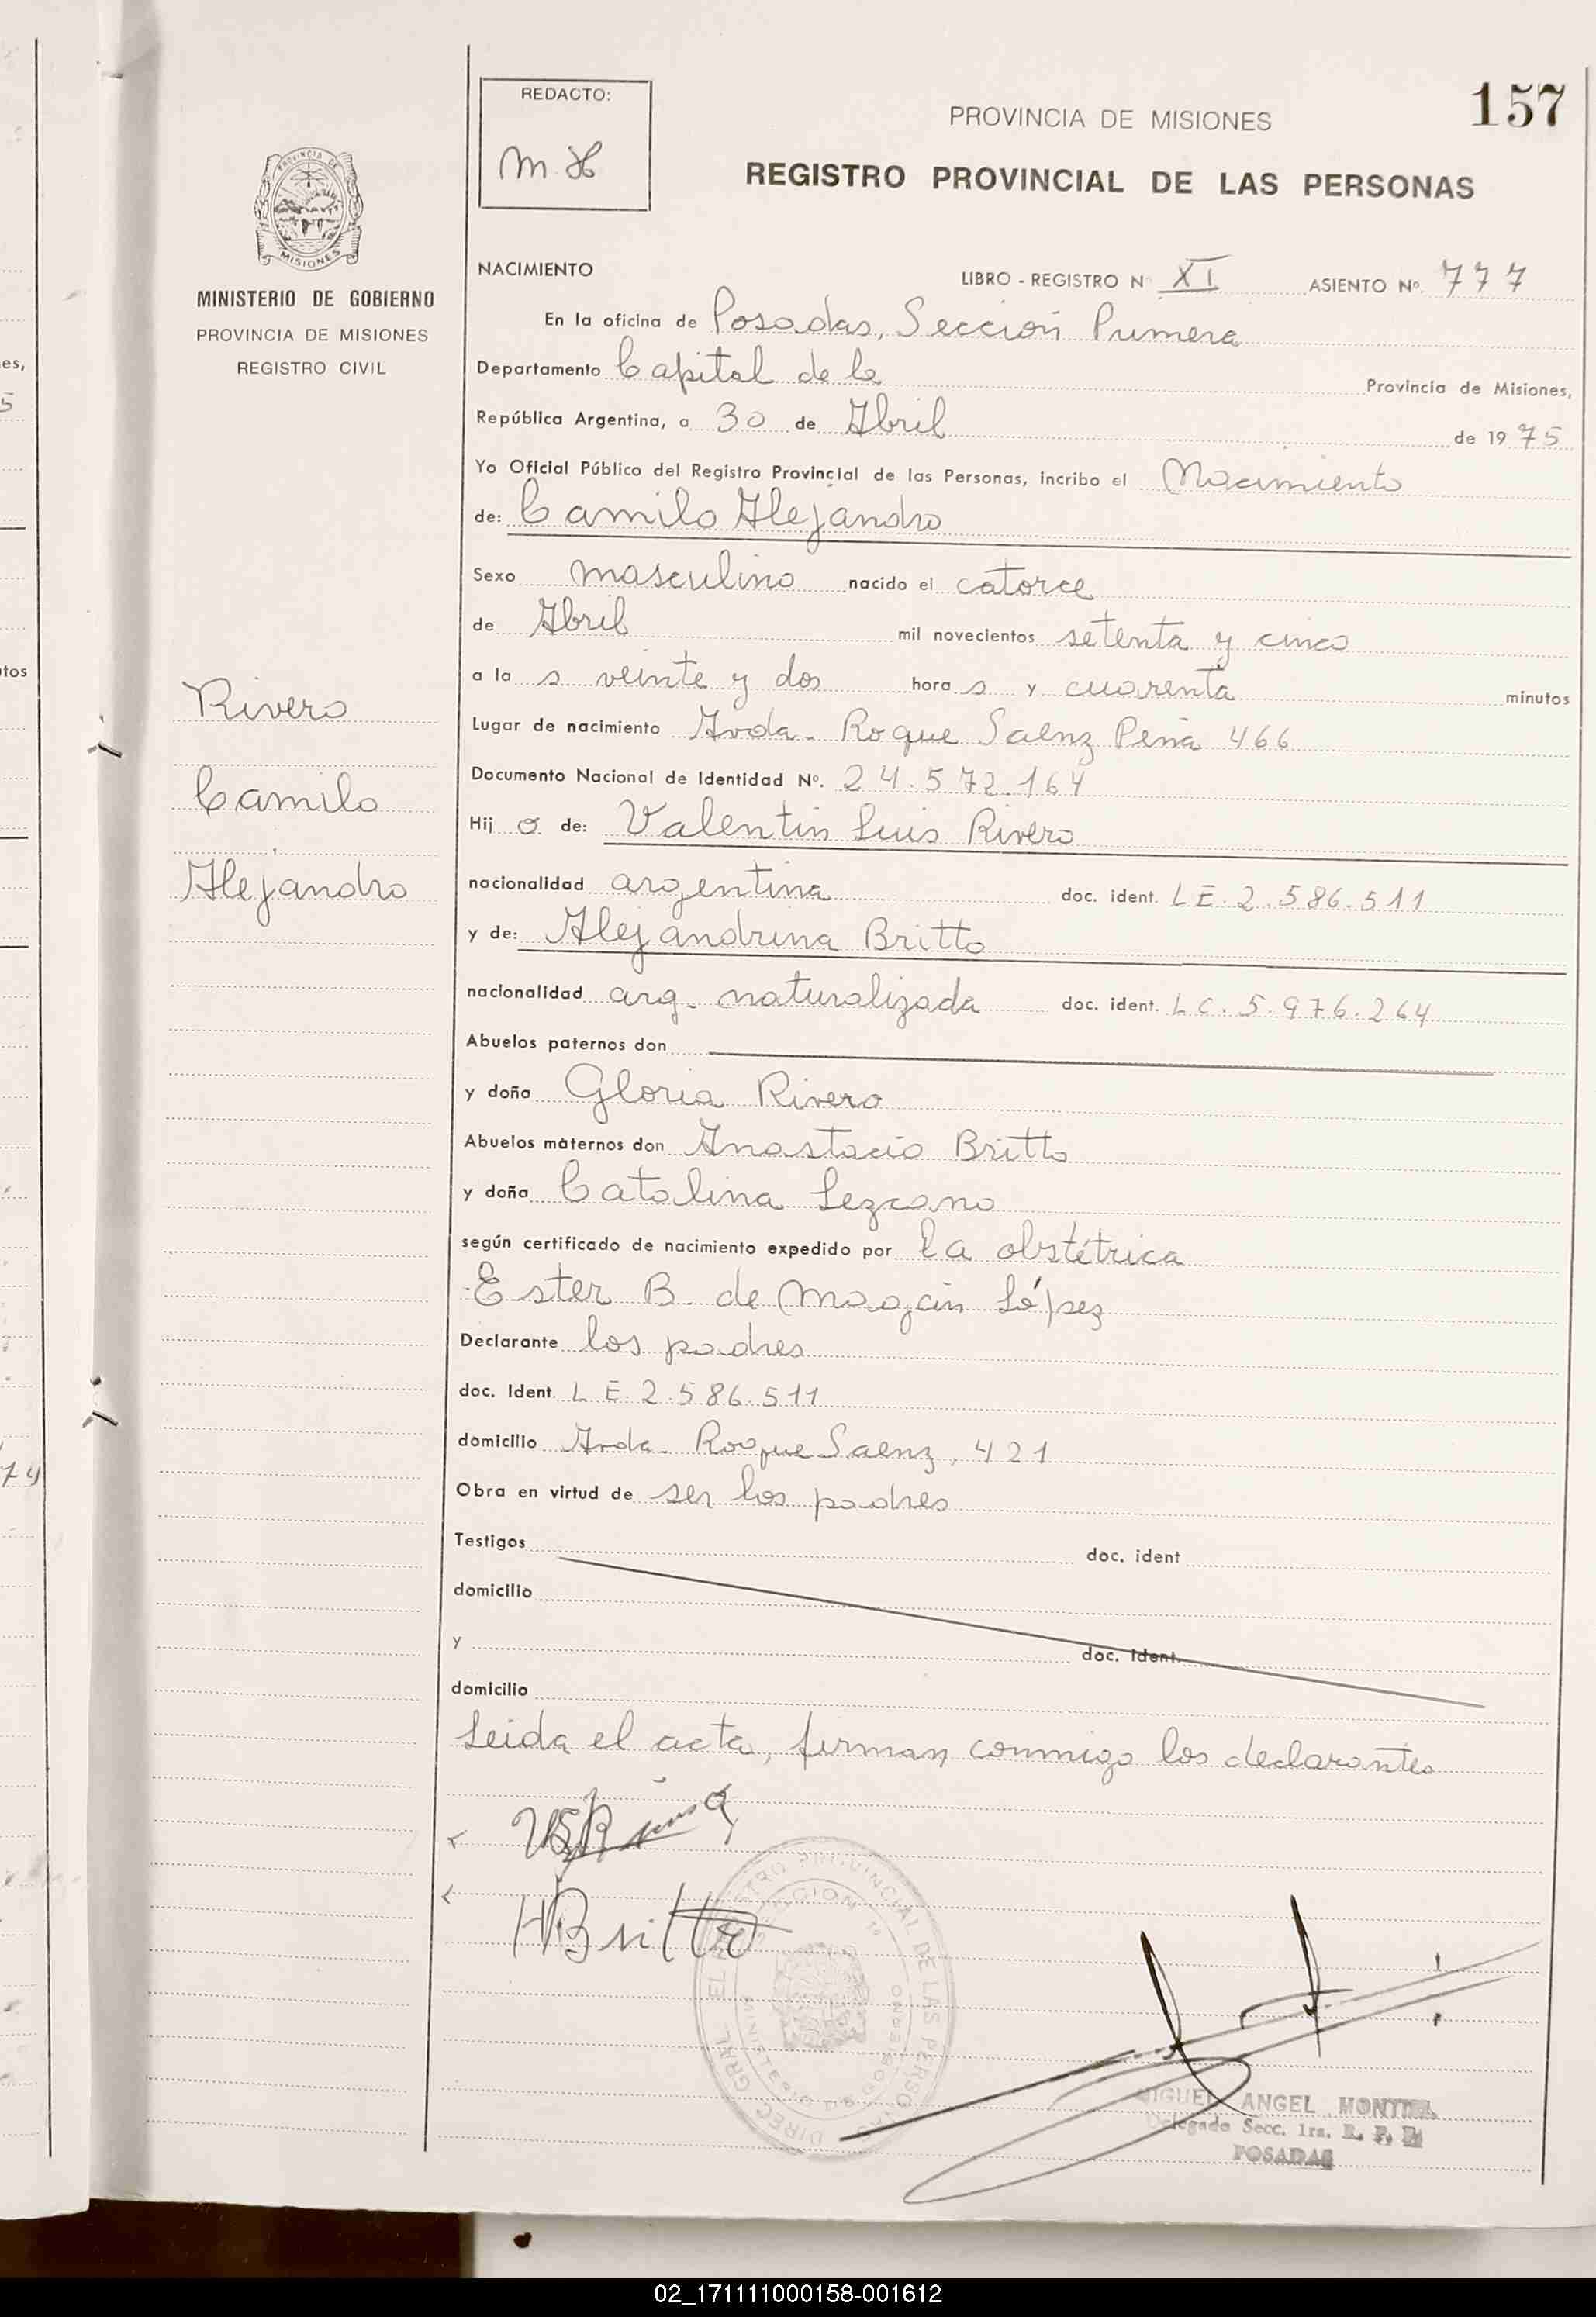 157
REDACTO:
PROVINCIA DE MISIONES
REGISTRO PROVINCIAL DE LAS PERSONAS
PROVINCIA DE
MISIONES
MINISTERIO DE GOBIERNO
PROVINCIA DE MISIONES
REGISTRO CIVIL
NACIMIENTO LIBRO - REGISTRO N° XI ASIENTO Nº. 777
En la oficina de Posadas, Sección Primera
Departamento Capital de la Provincia de Misiones,
República Argentina, a 30 de Abril de 1975
Yo Oficial Público del Registro Provincial de las Personas, incribo el Nacimiento
de: Camilo Alejandro
Sexo masculino nacido el catorce
de Abril mil novecientos setenta y cinco
a la s veinte y dos hora s y cuarenta minutos
Lugar de nacimiento Avda. Roque Saenz Peña 466
Documento Nacional de Identidad Nº. 24.572.164
Hij o de: Valentin Luis Rivero
nacionalidad argentina doc. ident. LE.2.586.511
y de: Alejandrina Britto
nacionalidad arg. naturalizada doc. ident. LC.5.976.264
Abuelos paternos don
y doña Gloria Rivero
Abuelos maternos don Anastacio Britto
y doña Catalina Lezcano
según certificado de nacimiento expedido por la obstétrica
Ester B. de López
Declarante los padres
doc. Ident. LE.2.586.511
domicilio Avda. Roque Saenz, 421
Obra en virtud de ser los padres
Testigos doc. ident
domicilio
y doc. ident.
domicilio
Leida el acta, firman conmigo los declarantes
Rivero
Camilo
Alejandro
HBritto
DIREC. GRAL. EL REGISTRO PROVINCIAL DE LAS PERSONAS
MIGUEL ANGEL MONTIEL
Delegado Secc. 1ra. R. P. P.
POSADAS
es,
5
tos
74
02_171111000158-001612